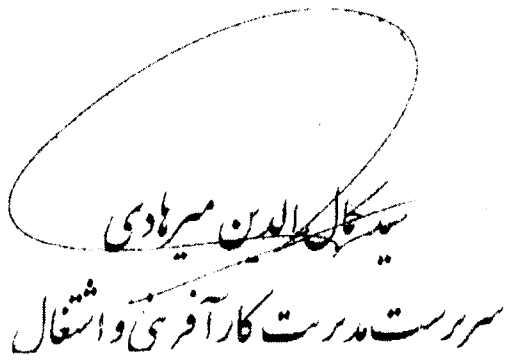 سید کمال الدین میرهادی
سرپرست مدیریت کارآفرینی و اشتغال